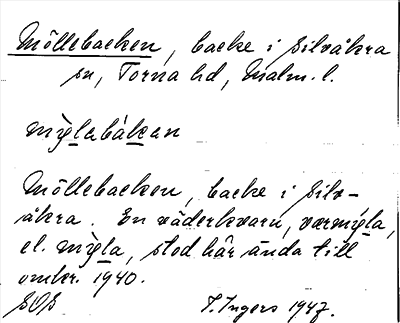 Möllebacken, backe i Silvåkra
sn, Torna hd, Malm. l.
mỳlabákan
Möllebacken, backe i Silv-
åkra. En väderkvarn, varmýla,
el. mỳla, stod här ända till
omkr. 1940.
SOS I. Ingers 1947.